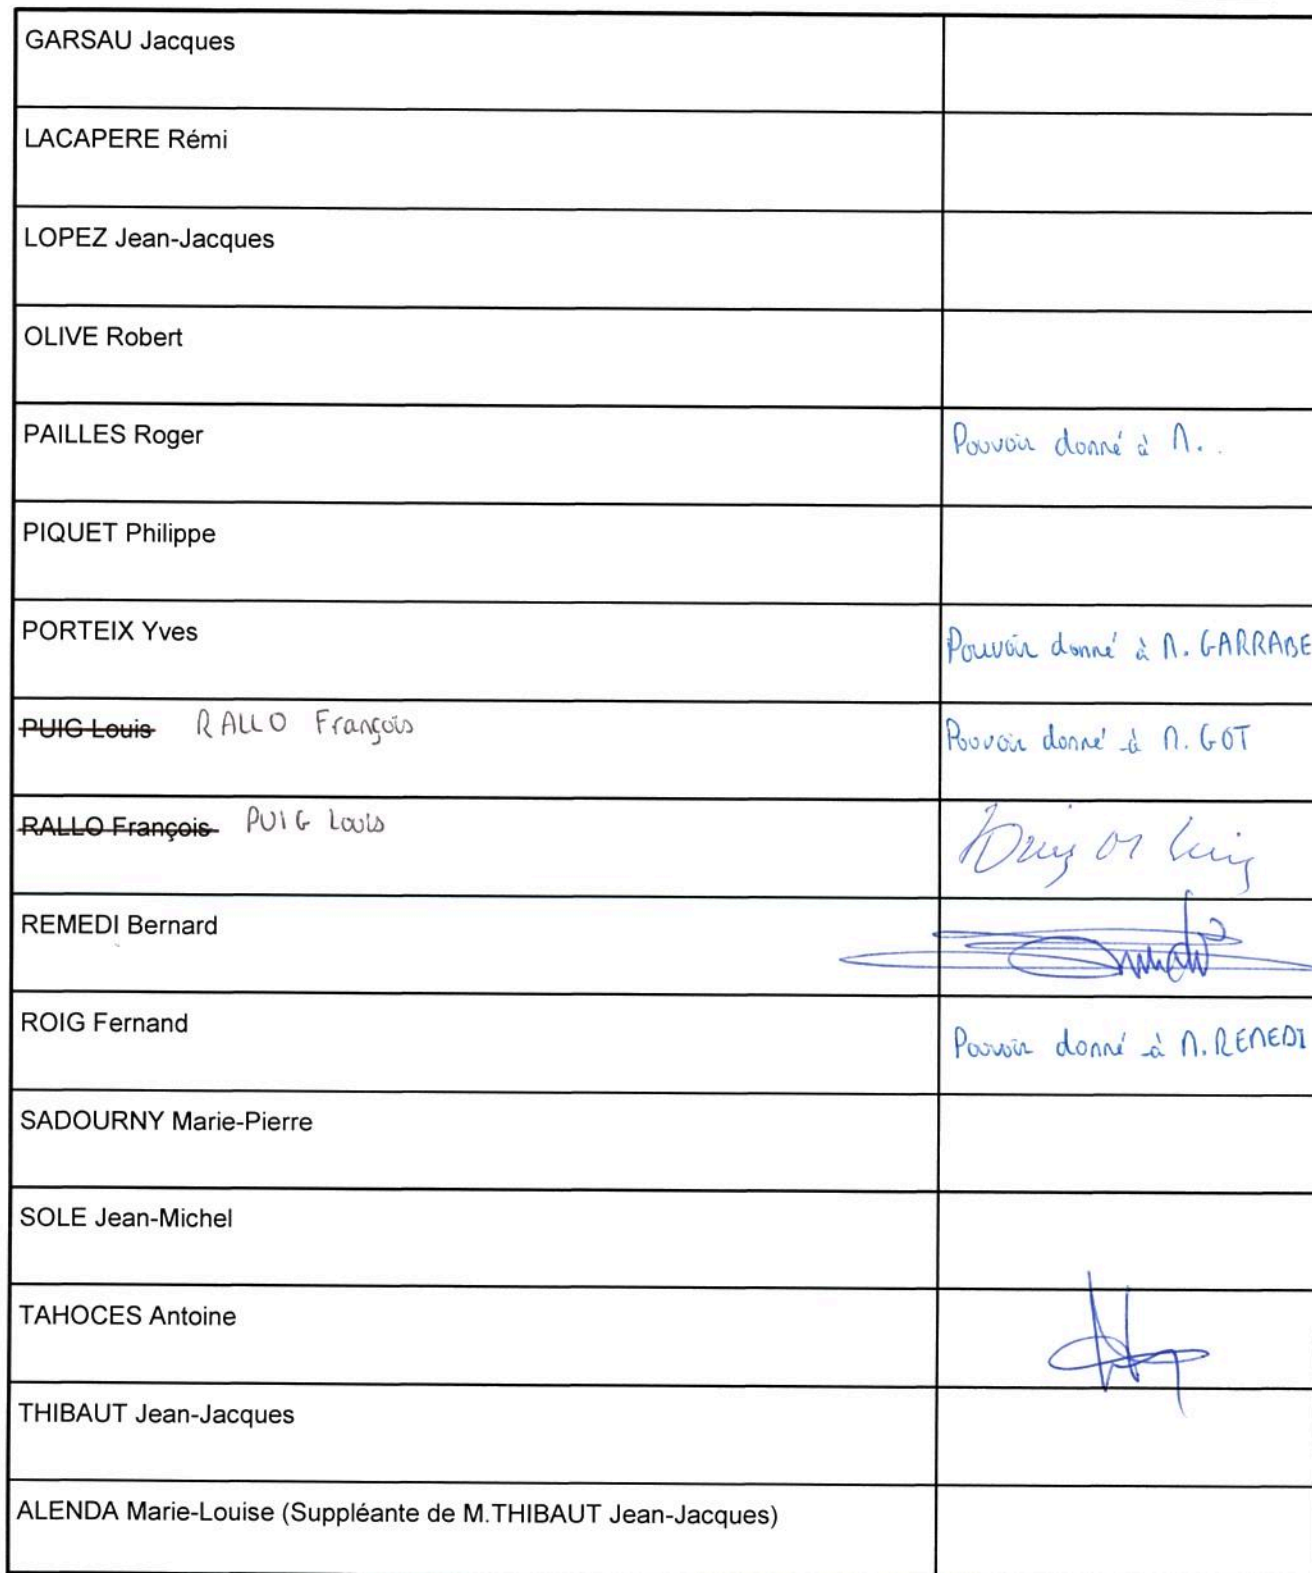 GARSAU Jacques
LACAPERE Rémi
LOPEZ Jean-Jacques
OLIVE Robert
PAILLES Roger Pouvoir donné à M.
PIQUET Philippe
PORTEIX Yves Pouvoir donné à M. GARRABE
PUIG Louis RALLO François Pouvoir donné à M. GOT
RALLO François PUIG Louis
REMEDI Bernard
ROIG Fernand Pouvoir donné à M. REMEDI
SADOURNY Marie-Pierre
SOLE Jean-Michel
TAHOCES Antoine
THIBAUT Jean-Jacques
ALENDA Marie-Louise (Suppléante de M.THIBAUT Jean-Jacques)